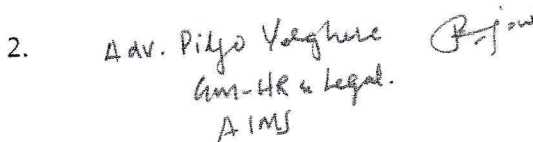 2. Adv. Pidjo Varghese
GM-HR & Legal.
AIMS